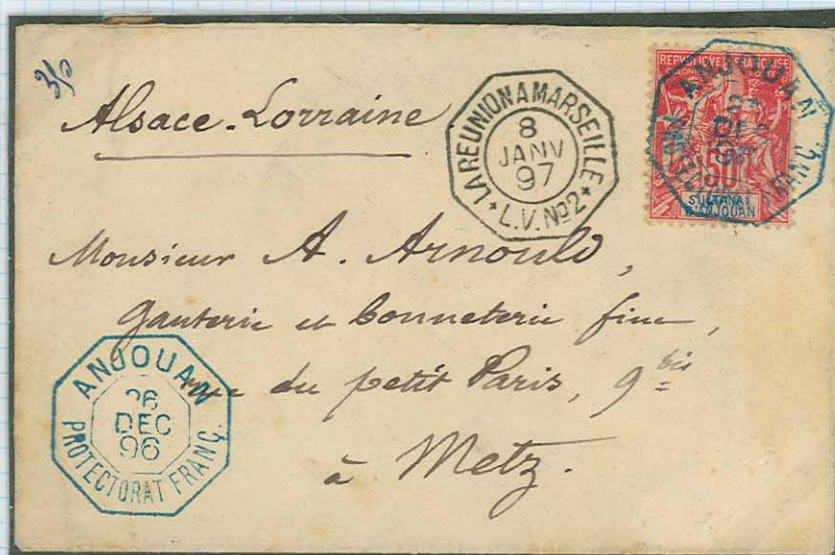 Alsace-Lorraine
LA REUNION A MARSEILLE
8
JANV
97
* L.V. No 2 *
REPUBLIQUE FRANÇAISE
50
SULTANAT
D'ANJOUAN
ANJOUAN
DEC
96
FRANÇ.
Monsieur A. Arnould,
Ganterie et bonneterie fine,
rue du petit Paris, 9 bis
à Metz.
ANJOUAN
26
DEC
96
PROTECTORAT FRANÇ.